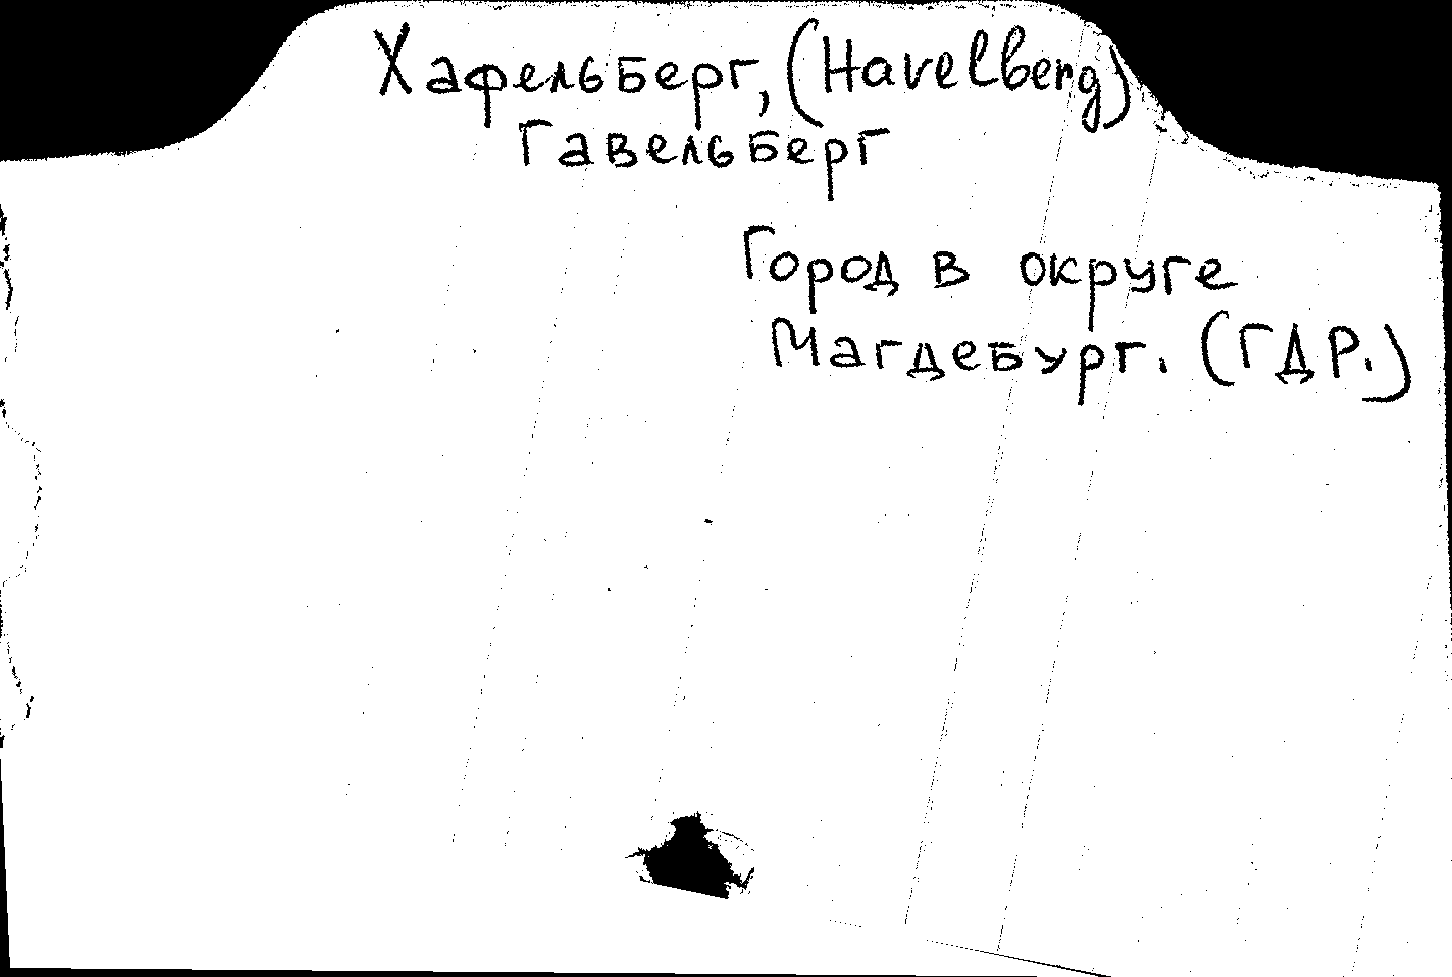 Хафельберг, (Havelberg)
Гавельберг
Город в округе
Магдебург. (ГДР.)